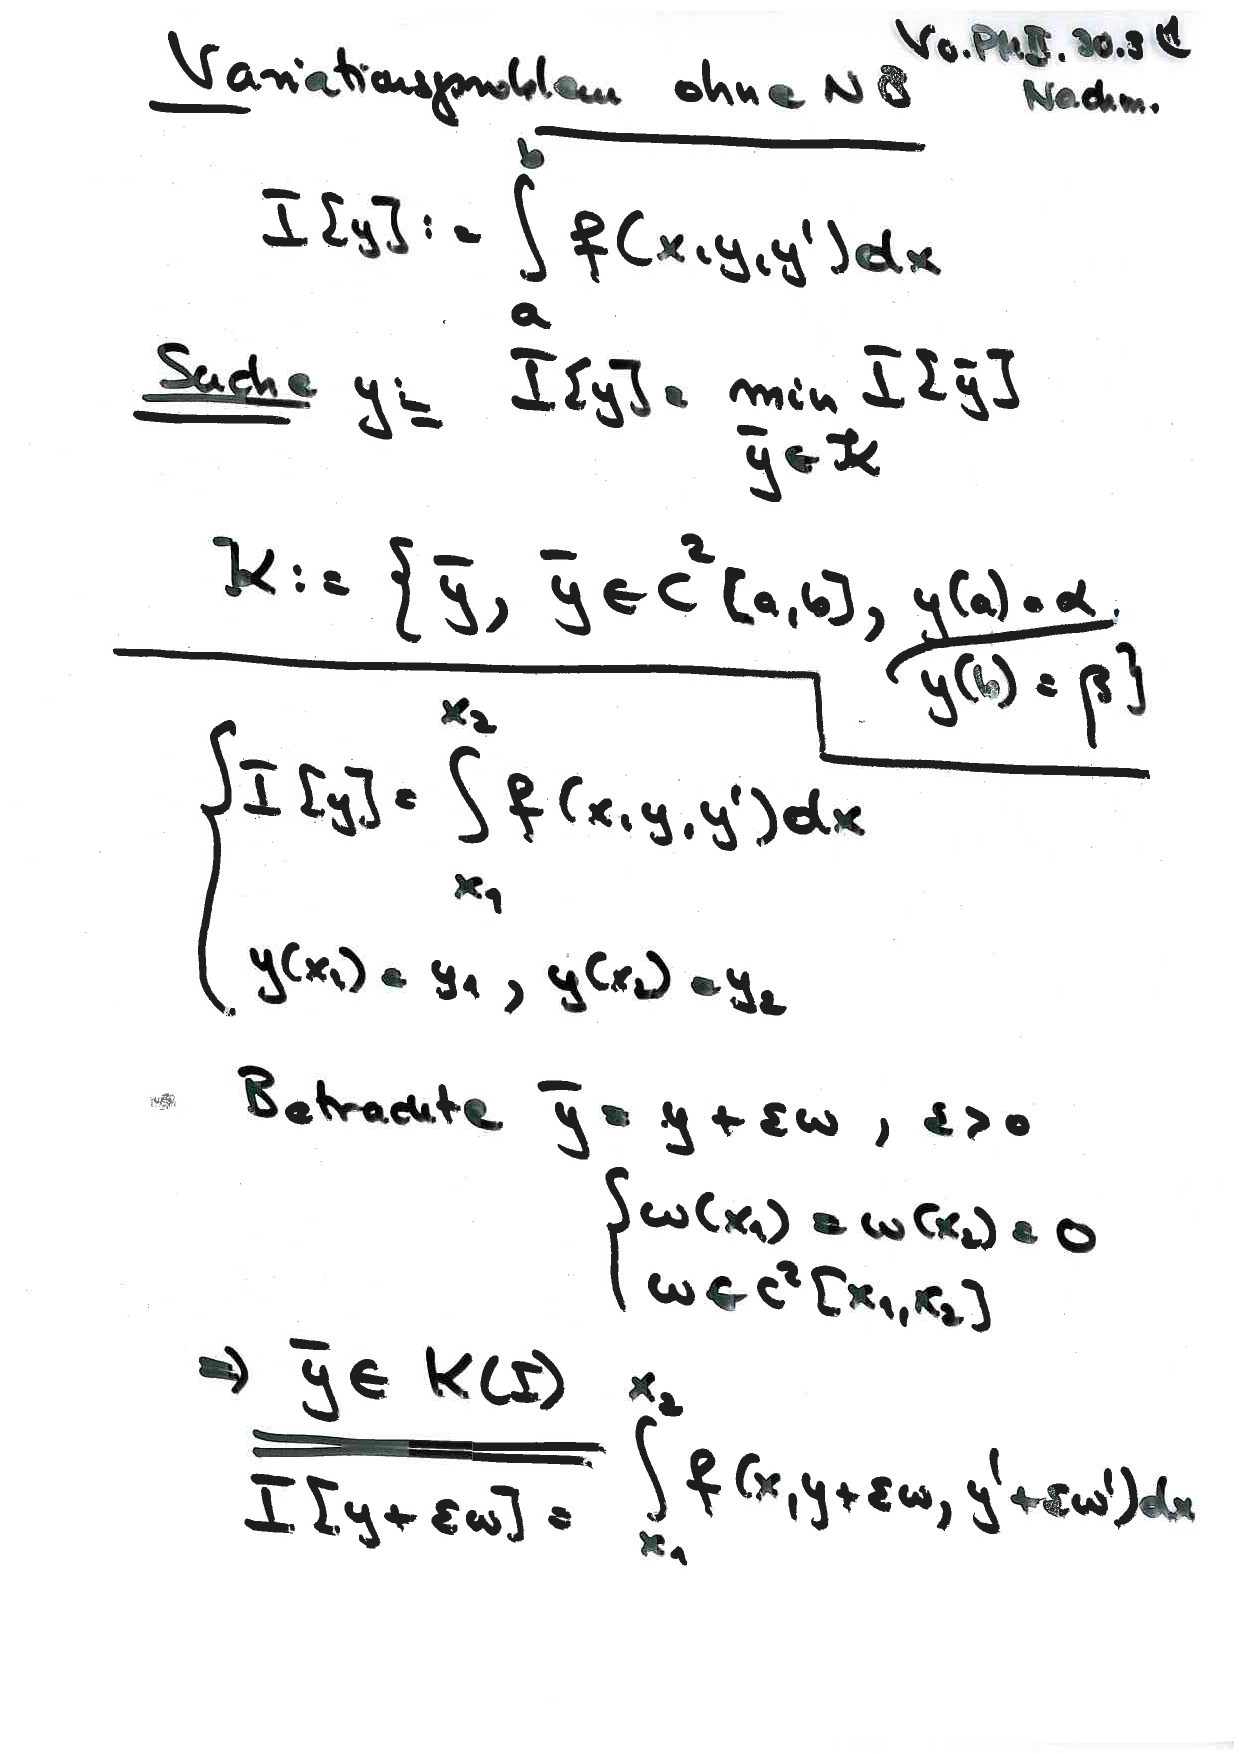 Variationsproblem ohne NB
Vo. PM II. 30.3
Nachm.
I[y] := ∫_a^b f(x, y, y') dx
Suche y: I[y] = min_{ȳ ∈ K} I[ȳ]
K := {ȳ, ȳ ∈ C²[a,b], y(a) = α,
y(b) = β}
I[y] = ∫_{x₁}^{x₂} f(x, y, y') dx
y(x₁) = y₁, y(x₂) = y₂
Betrachte ȳ = y + εω, ε > 0
ω(x₁) = ω(x₂) = 0
ω ∈ C²[x₁, x₂]
⇒ ȳ ∈ K(I)
I[y + εω] = ∫_{x₁}^{x₂} f(x, y + εω, y' + εω') dx